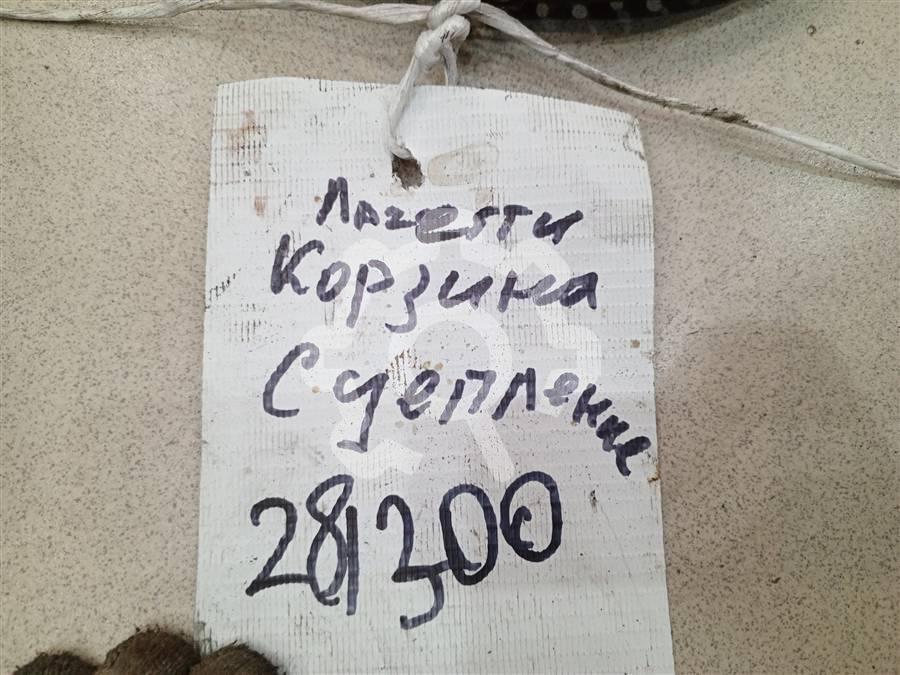 Лачетти
Корзина
Сцепление
281300